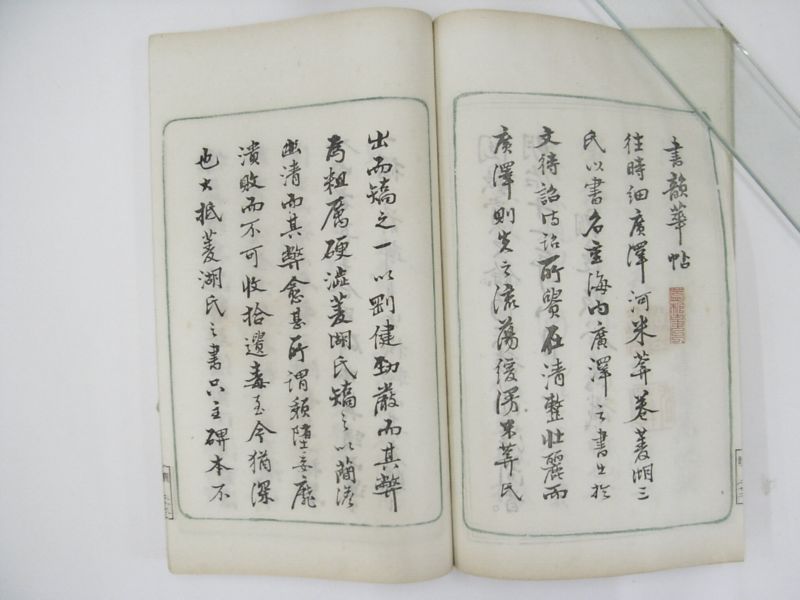 書韻華帖
往時細廣澤河米葊卷菱湖三
氏以書名重海内廣澤之書出於
文待詔待詔所貴在清整壯麗而
廣澤則失之流蕩緩漫米葊氏
出而矯之一以剛健勁嚴而其弊
為粗厲硬澁菱湖氏矯之以蕳澹
幽清而其弊愈甚所謂頽堕委靡
潰敗而不可收拾遺毒至今猶深
也大抵菱湖氏之書只主碑本不